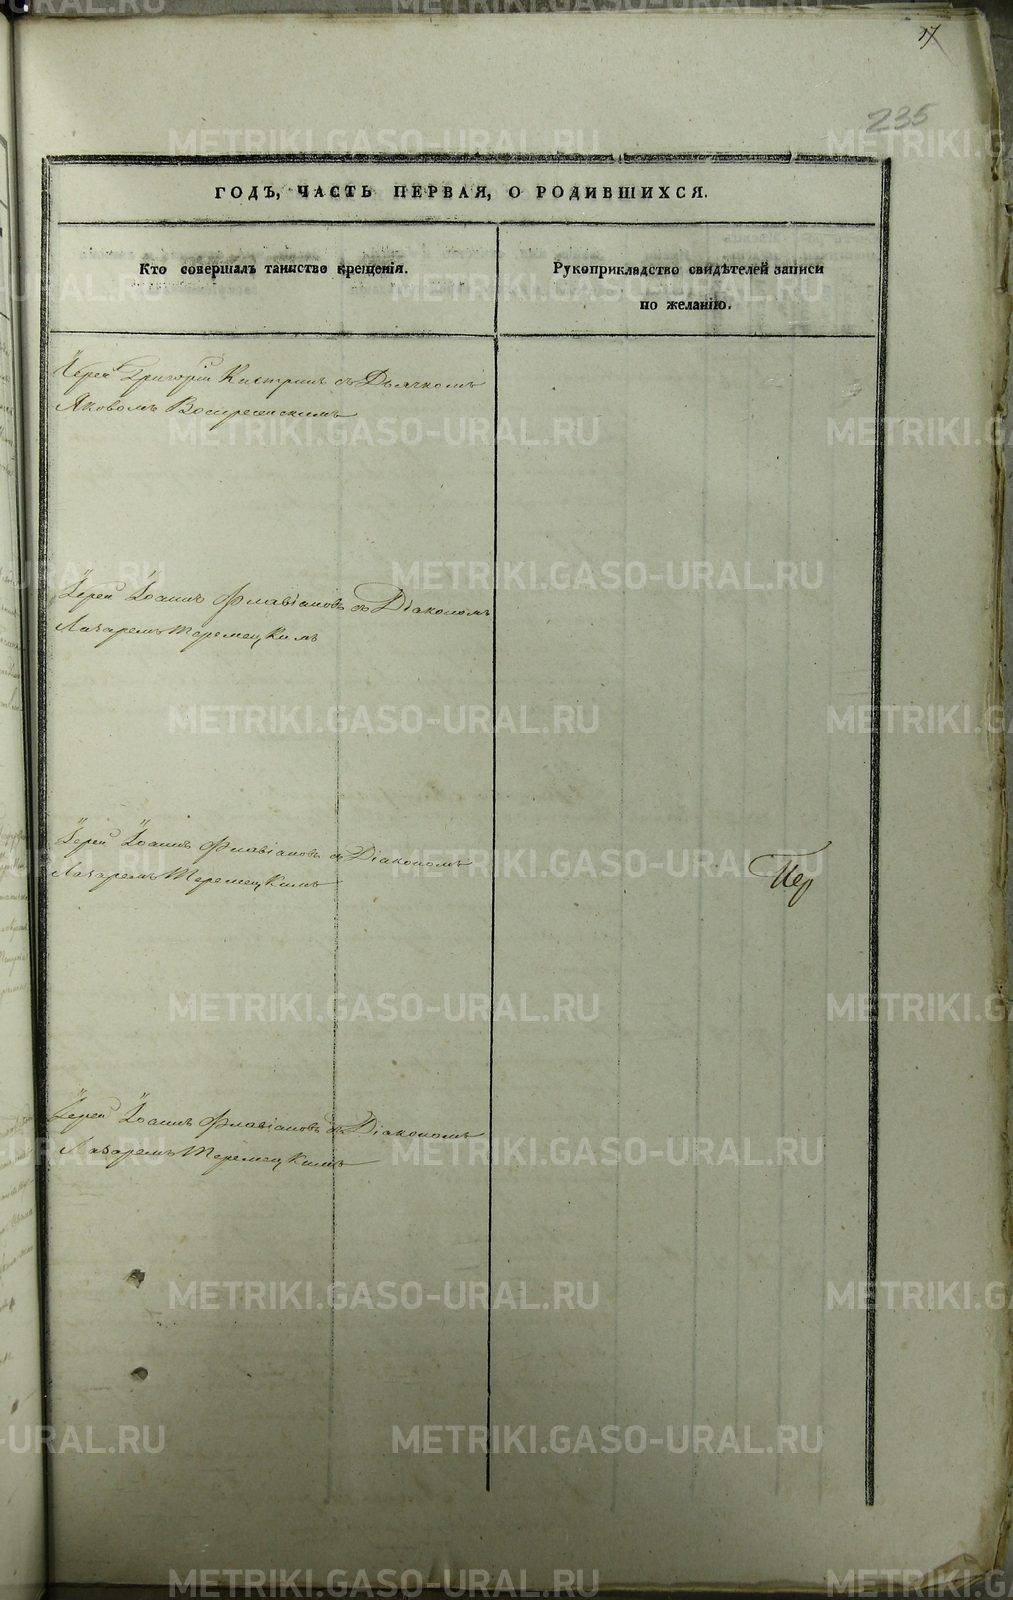 17
235
ГОДЪ, ЧАСТЬ ПЕРВАЯ, О РОДИВШИХСЯ.
Кто совершалъ таинство крещенія.
Рукоприкладство свидѣтелей записи
по желанію.
Іерей Григорій Кастринъ съ Дьячкомъ
Яковомъ Воскресенскимъ
Іерей Іоаннъ Флавіановъ съ Діакономъ
Лазаремъ Теремецкимъ
Іерей Іоаннъ Флавіановъ съ Діакономъ
Лазаремъ Теремецкимъ
Іер
Іерей Іоаннъ Флавіановъ съ Діакономъ
Лазаремъ Теремецкимъ
METRIKI.GASO-URAL.RU